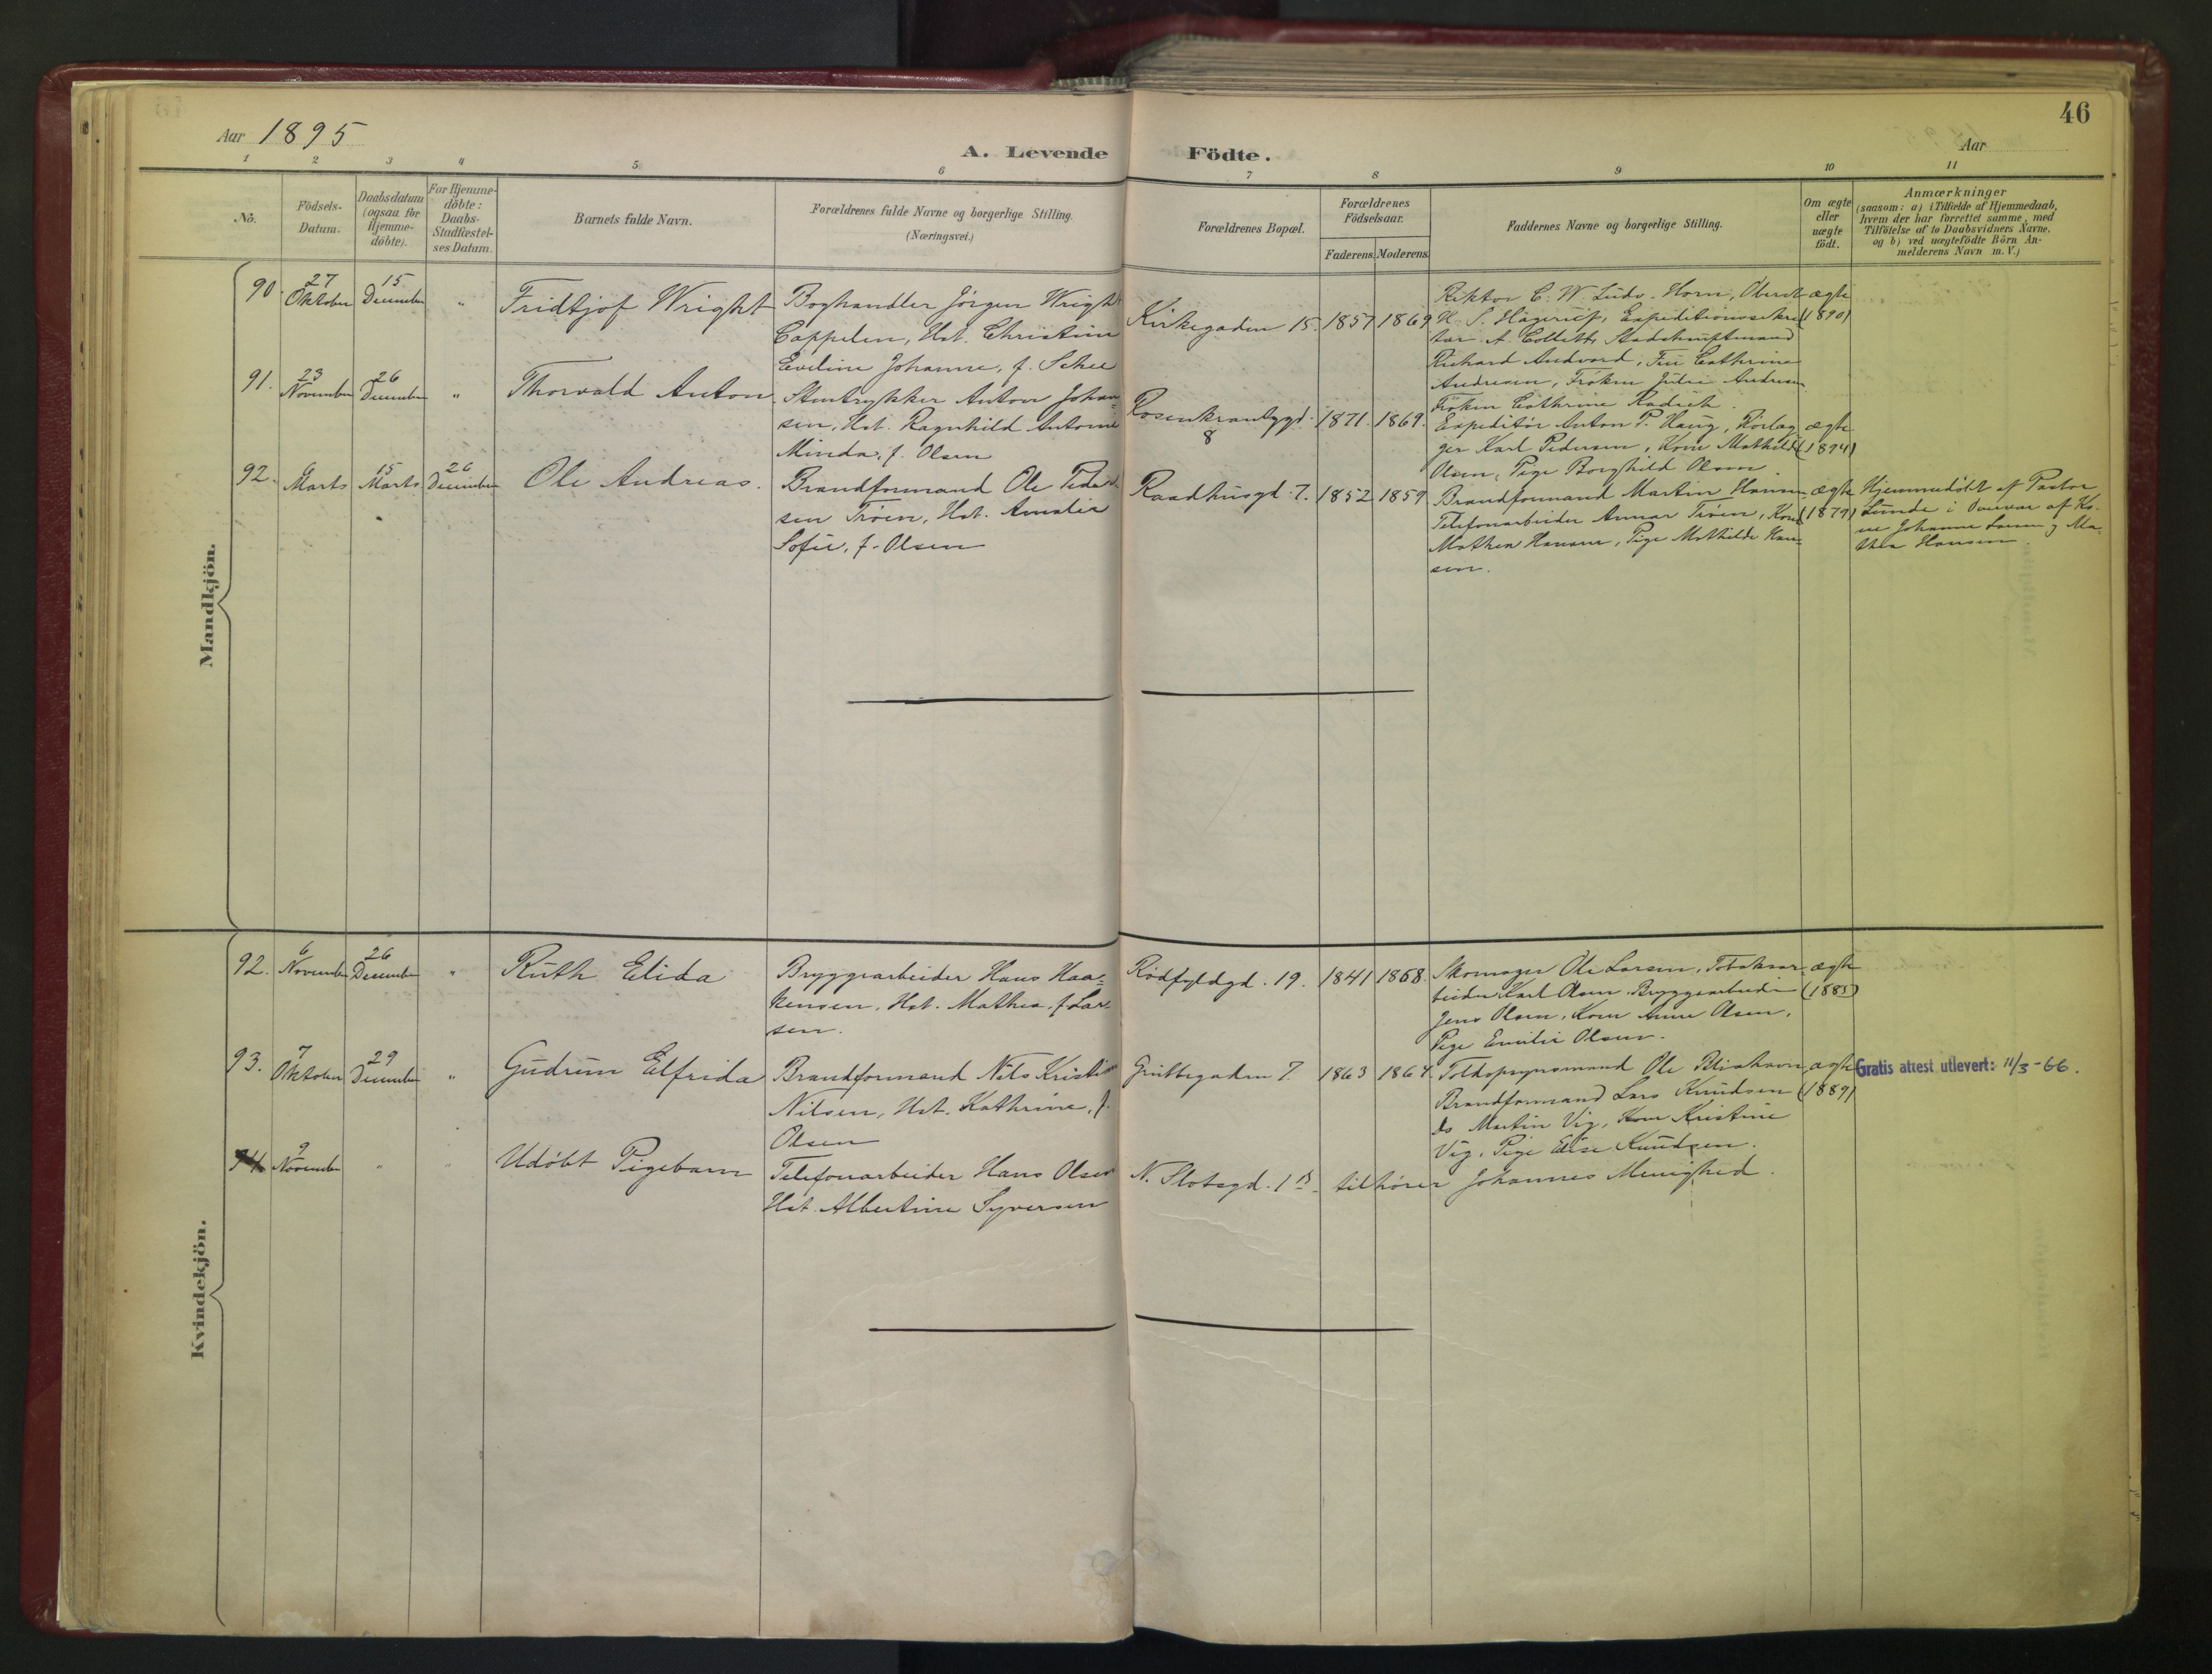 46
Aar 1895
A. Levende Födte.
Aar
1 2 3 4 5 6 7 8 9 10 11
No.
Födsels-
Datum.
Daabsdatum
(ogsaa for
Hjemme-
döbte).
For Hjemme-
döbte:
Daabs-
Stadfæstel-
ses Datum.
Barnets fulde Navn.
Forældrenes fulde Navne og borgerlige Stilling.
(Næringsvei.)
Forældrenes Bopæl.
Forældrenes
Födselsaar.
Faderens. Moderens.
Faddernes Navne og borgerlige Stilling.
Om ægte
eller
uægte
födt.
Anmærkninger
(saasom: a) i Tilfælde af Hjemmedaab,
hvem der har forrettet samme, med
Tilföielse af to Daabsvidners Navne,
og b) ved uægtefödte Börn An-
melderens Navn m.V.)
Mandkjön.
90. 27 Oktober
15 December
"
Fridtjof Wright
Boghandler Jörgen Wright
Cappelen, Hst. Christine
Eveline Johanne, f. Schee
Kirkegaden 15. 1857 1869
Rektor C. W. Ludv. Horn, Oberst
Expeditionssekre
tær A. Collett,
Richard Andvord, Fru Cathrine
Andresen, Fröken Julie Andresen
Fröken Cathrine
ægte
(1890)
91. 23 November
26 December
"
Thorvald Anton
Stentrykker Anton Johan-
sen, Hst. Ragnhild Antonie
Minda, f. Olsen
Rosenkrantzgd.
8
1871. 1869.
Expeditör Anton P. Haug,
Karl Pedersen, Kone Mathilde
Olsen, Pige Borghild Olsen.
ægte
(1894)
92. 6 Marts
15 Marts
26 December
Ole Andreas.
Brandformand Ole Peder-
sen Tröen, Hst. Amalie
Sofie, f. Olsen
Raadhusgd. 7. 1852 1859
Brandformand Martin Hansen
Telefonarbeider Annar Tröen, Kone
Mathea Hansen, Pige Mathilde Han-
sen.
ægte
(1879)
Hjemmedöbt af Pastor
Lunde i Overvær af Ko-
ne Johanne Larsen og Ma-
thea Hansen.
Kvindekjön.
92. 6 November
26 December
"
Ruth Elida
Bryggearbeider Hans Haa-
kensen, Hst. Mathea, f. Lar-
sen.
Rödfyldgd. 19. 1841 1858.
Skomager Ole Larsen, Tobaksar-
beider Karl Olsen, Bryggearbeider
Jens Olsen, Kone Anne Olsen,
Pige Emilie Olsen.
ægte
(1885)
93. 7 Oktober
29 December
"
Gudrun Elfrida
Brandformand Nils Kristian
Nilsen, Hst. Kathrine, f.
Olsen
Grubbegaden 7. 1863 1864.
Toldopsynsmand Ole
Brandformand Lars Knudsen
do Martin Vig, Kone Kristine
Vig, Pige Elise Knudsen.
ægte
(1889)
Gratis attest utlevert: 11/3-66.
94 9 November
" "
Udöbt Pigebarn
Telefonarbeider Hans Olsen
Hst. Albertine Syversen
N. Slotsgd. 15 tilhörer Johannes Menighed.